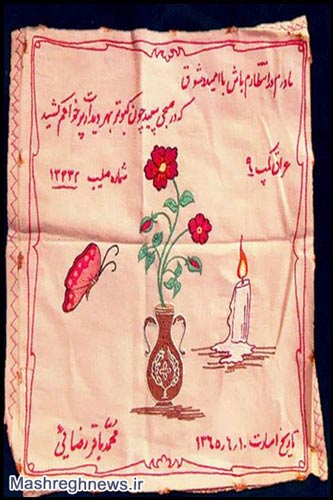 مادرم در انتظارم باش با امید و شوق
که در صبحی سپید چون کبوتر بهر دیدار تو پر خواهم کشید
عراق کمپ ۹
شماره صلیب ۱۳۳۳۲
تاریخ اسارت ۱۳۶۵/۶/۱۰
محمد باقر رضائی
Mashreghnews.ir